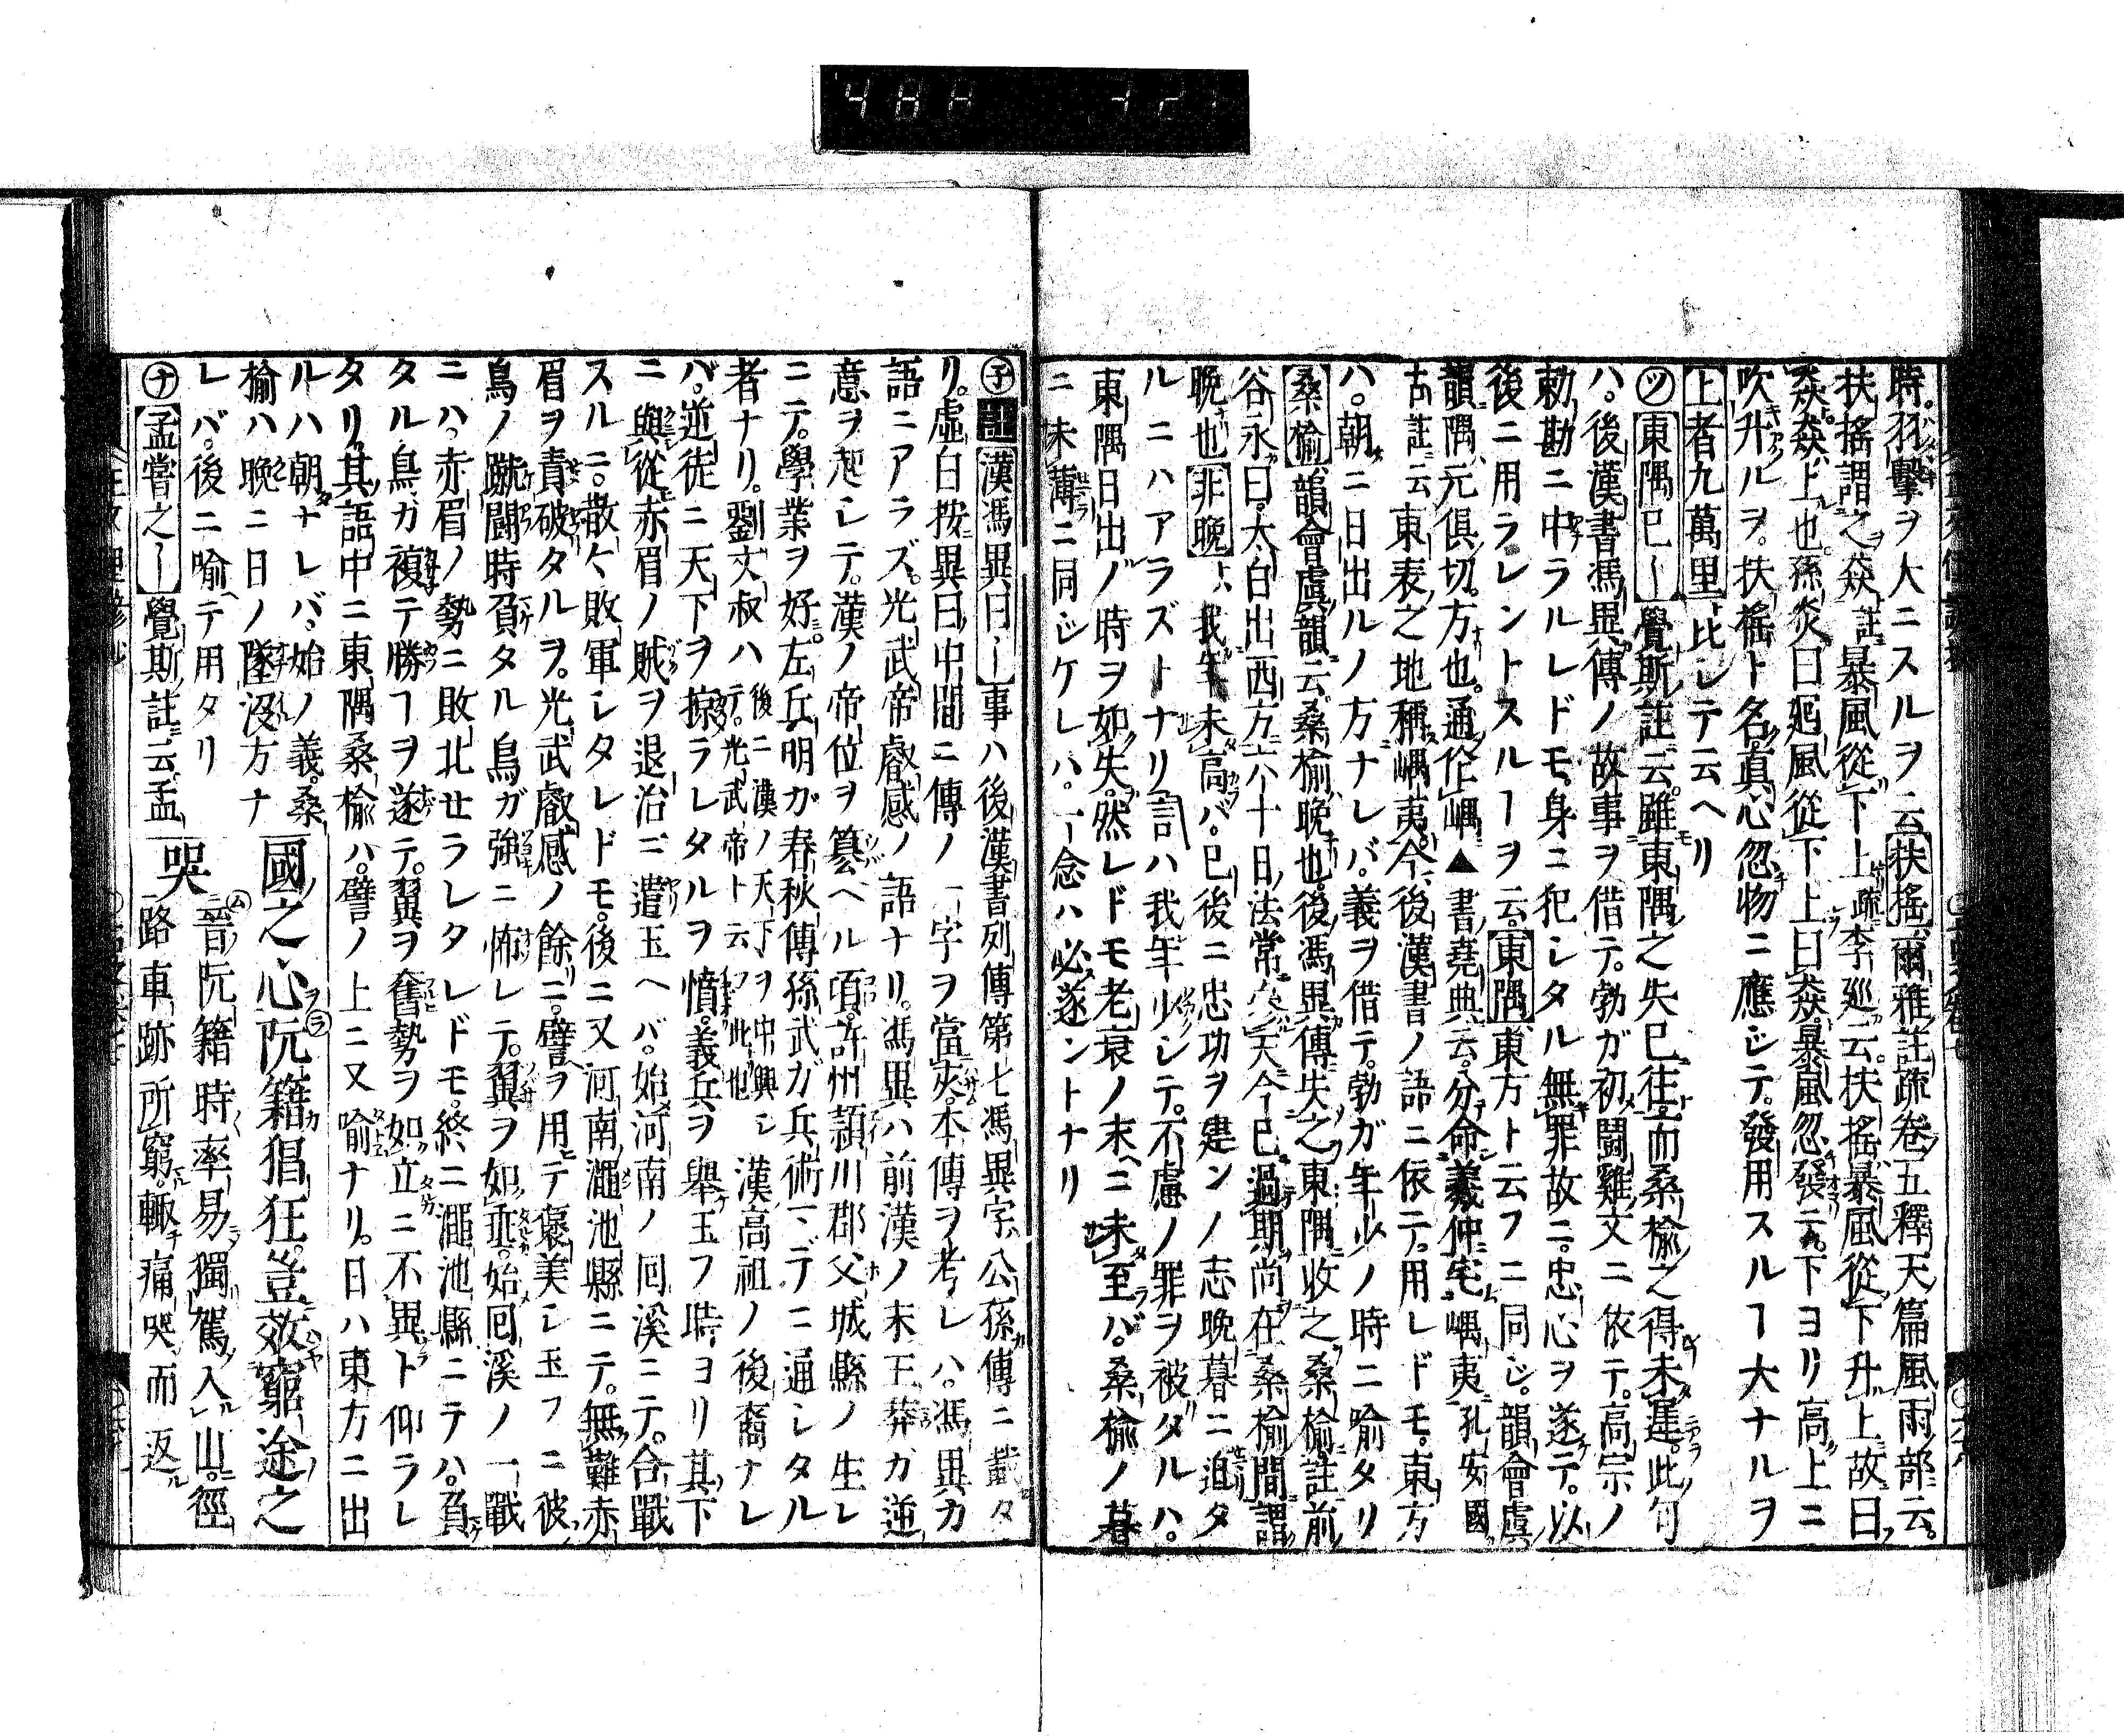 時羽擊ヲ大ニスルヲ云扶搖爾雅註疏卷五釋天篇風雨部云
扶搖謂之猋註暴風從下上疏李巡云扶搖暴風從下升上故曰
猋猋上也孫炎曰廻風從下上曰猋暴風忽發ニ下ヨリ高上ニ
吹升ルヲ扶搖ト名眞心忽物ニ應シテ發用スルヿ大ナルヲ
上者九萬里ニ比シテ云ヘリ
㋡東隅已〡覺斯註云雖東隅之失已往而桑榆之得未遲此句
ハ後漢書馮異傳ノ故事ヲ借テ勃ガ初鬪雞文ニ依テ高宗ノ
勅勘ニ中ラルレドモ身ニ犯シタル無罪故ニ忠心ヲ遂テ以
後ニ用ラレントスルヿヲ云東隅東方ト云フニ同シ韻會虞
韻隅元俱切方也通作嵎▲書堯典云分命羲仲宅嵎夷孔安國
古註云東表之地稱嵎夷今後漢書ノ語ニ依テ用レドモ東方
ハ朝ニ日出ルノ方ナレバ義ヲ借テ勃ガ年少ノ時ニ喻タリ
桑榆韻會虞韻云桑榆晚也後馮異傳失之東隅收之桑榆註前
谷永曰太白出西方六十日法常參天今已過期尚在桑榆間謂
晚也非晚ハ我年未高バ已後ニ忠功ヲ建ンノ志晚暮ニ迫タ
ルニハアラズトナリ言ハ我年少シテ不慮ノ罪ヲ被タルハ
東隅日出ノ時ヲ如失然レドモ老衰ノ末ニ未至バ桑榆ノ暮
ニ未薄ニ同シケレハ一念ハ必遂ントナリ
㋧註漢馮異曰〡事ハ後漢書列傳第七馮異字公孫傳ニ載タ
リ虛白按異曰中間ニ傳ノ一字ヲ當夾本傳ヲ考レハ馮異カ
語ニアラズ光武帝睿感ノ語ナリ馮異ハ前漢ノ末王莽ガ逆
意ヲ起シテ漢ノ帝位ヲ簒ヘル頃許州頴川郡父城縣ノ生レ
ニテ學業ヲ好左丘明ガ春秋傳孫武ガ兵術マデニ通シタル
者ナリ劉文叔ハ後ニ漢ノ天下ヲ中興シテ光武帝ト云フ此也漢高祖ノ後裔ナレ
バ逆徒ニ天下ヲ掠ラレタルヲ憤義兵ヲ舉玉フ時ヨリ其下
ニ與從赤眉ノ賊ヲ退治ニ遣玉ヘバ始河南ノ囘溪ニテ合戰
スルニ散々敗軍シタレドモ後ニ又河南澠池縣ニテ無難赤
眉ヲ責破タルヲ光武叡感ノ餘ニ譬ヲ用テ褒美シ玉フニ彼
鳥ノ蹴鬪時負タル鳥ガ強ニ怖レテ翼ヲ如垂始囘溪ノ一戰
ニハ赤眉ノ勢ニ敗北セラレタレドモ終ニ澠池縣ニテハ負
タル鳥ガ複テ勝ヿヲ遂テ翼ヲ奮勢ヲ如立ニ不異ト仰ラレ
タリ其語中ニ東隅桑榆ハ譬ノ上ニ又喻ナリ日ハ東方ニ出
ルハ朝ナレバ始ノ義桑
榆ハ晚ニ日ノ墜沒方ナ
レバ後ニ喻テ用タリ
㋤孟嘗之〡覺斯註云孟
國之心阮籍猖狂豈效窮途之
哭晉阮籍時率易獨駕入山徑
路車跡所窮輙痛哭而返